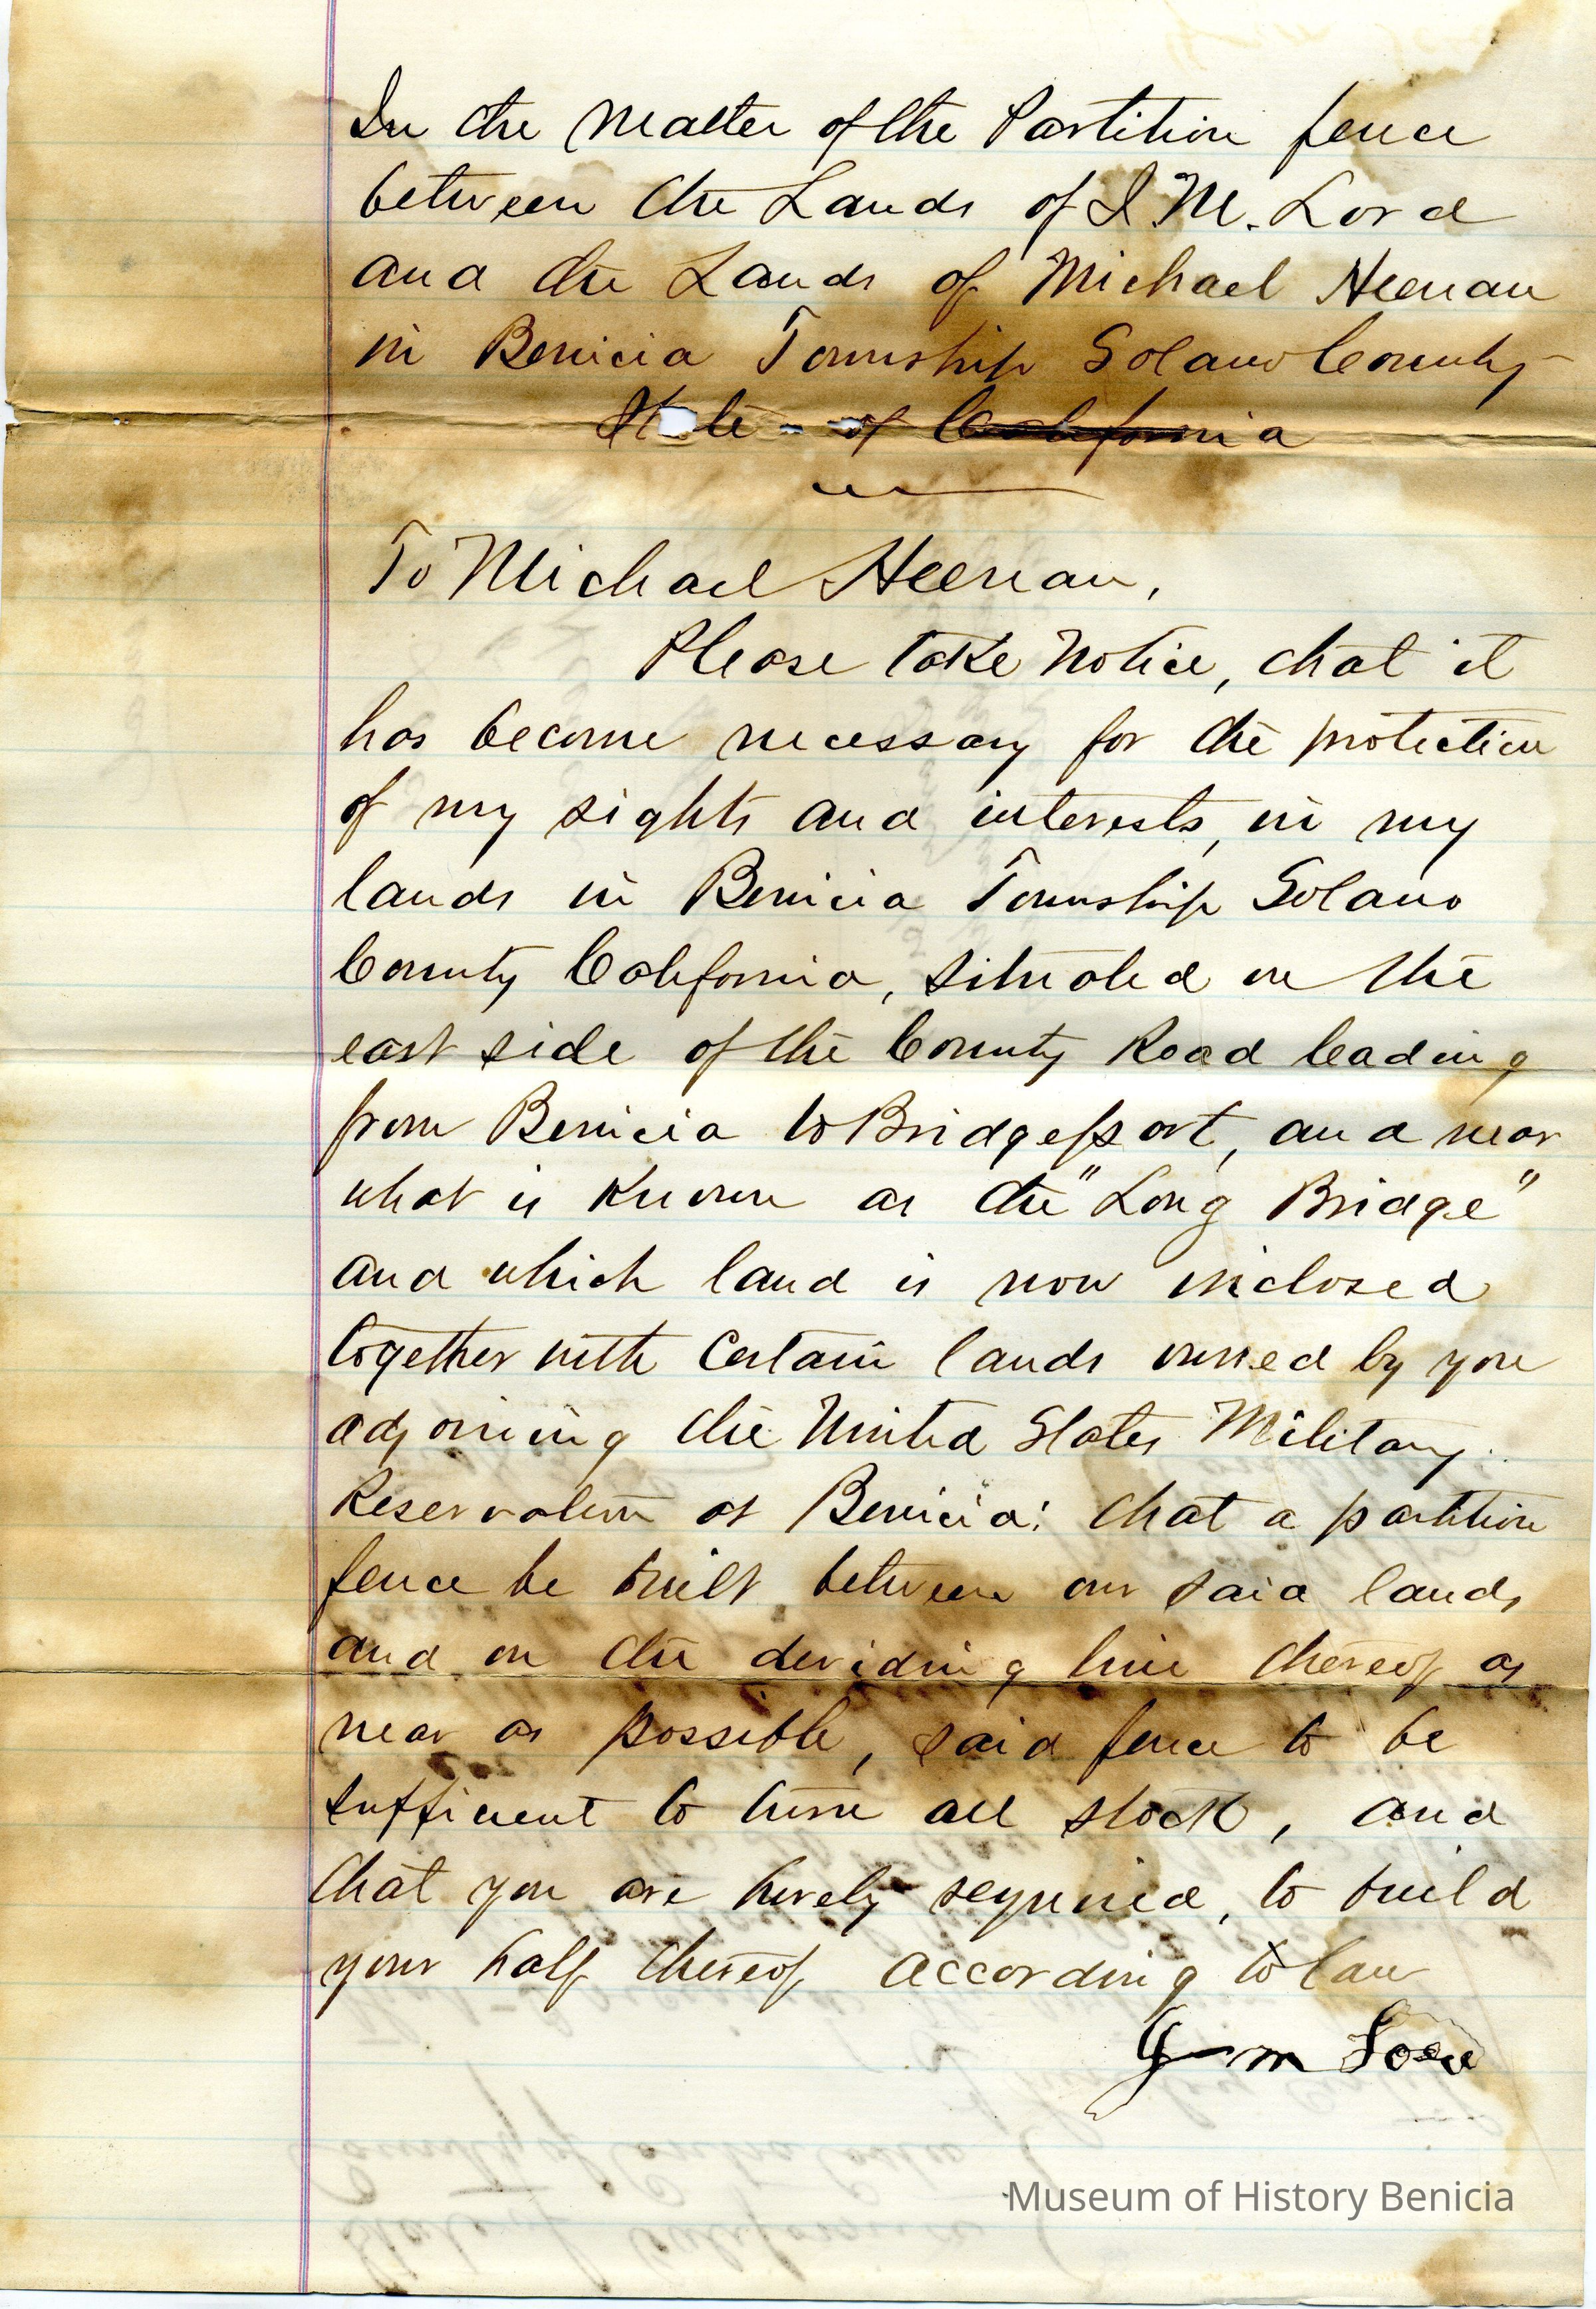 In the Matter of the Partition fence
between the Lands of J M. Lord
and the Lands of Michael Heenan
in Benicia Township Solano County
State - of California
To Michael Heenan,
Please take Notice, that it
has become necessary for the protection
of my rights and interests, in my
lands in Benicia Township Solano
County California, situated on the
east side of the County Road leading
from Benicia to Bridgeport, and near
what is known as the "Long Bridge"
and which land is now inclosed
together with Certain lands owned by you
adjoining the United States Military
Reservation at Benicia: that a partition
fence be built between our said lands
and on the deviding line thereof as
near as possible, said fence to be
sufficient to turn all stock, and
that you are hereby required, to build
your half thereof according to law
J M Lord
Museum of History Benicia